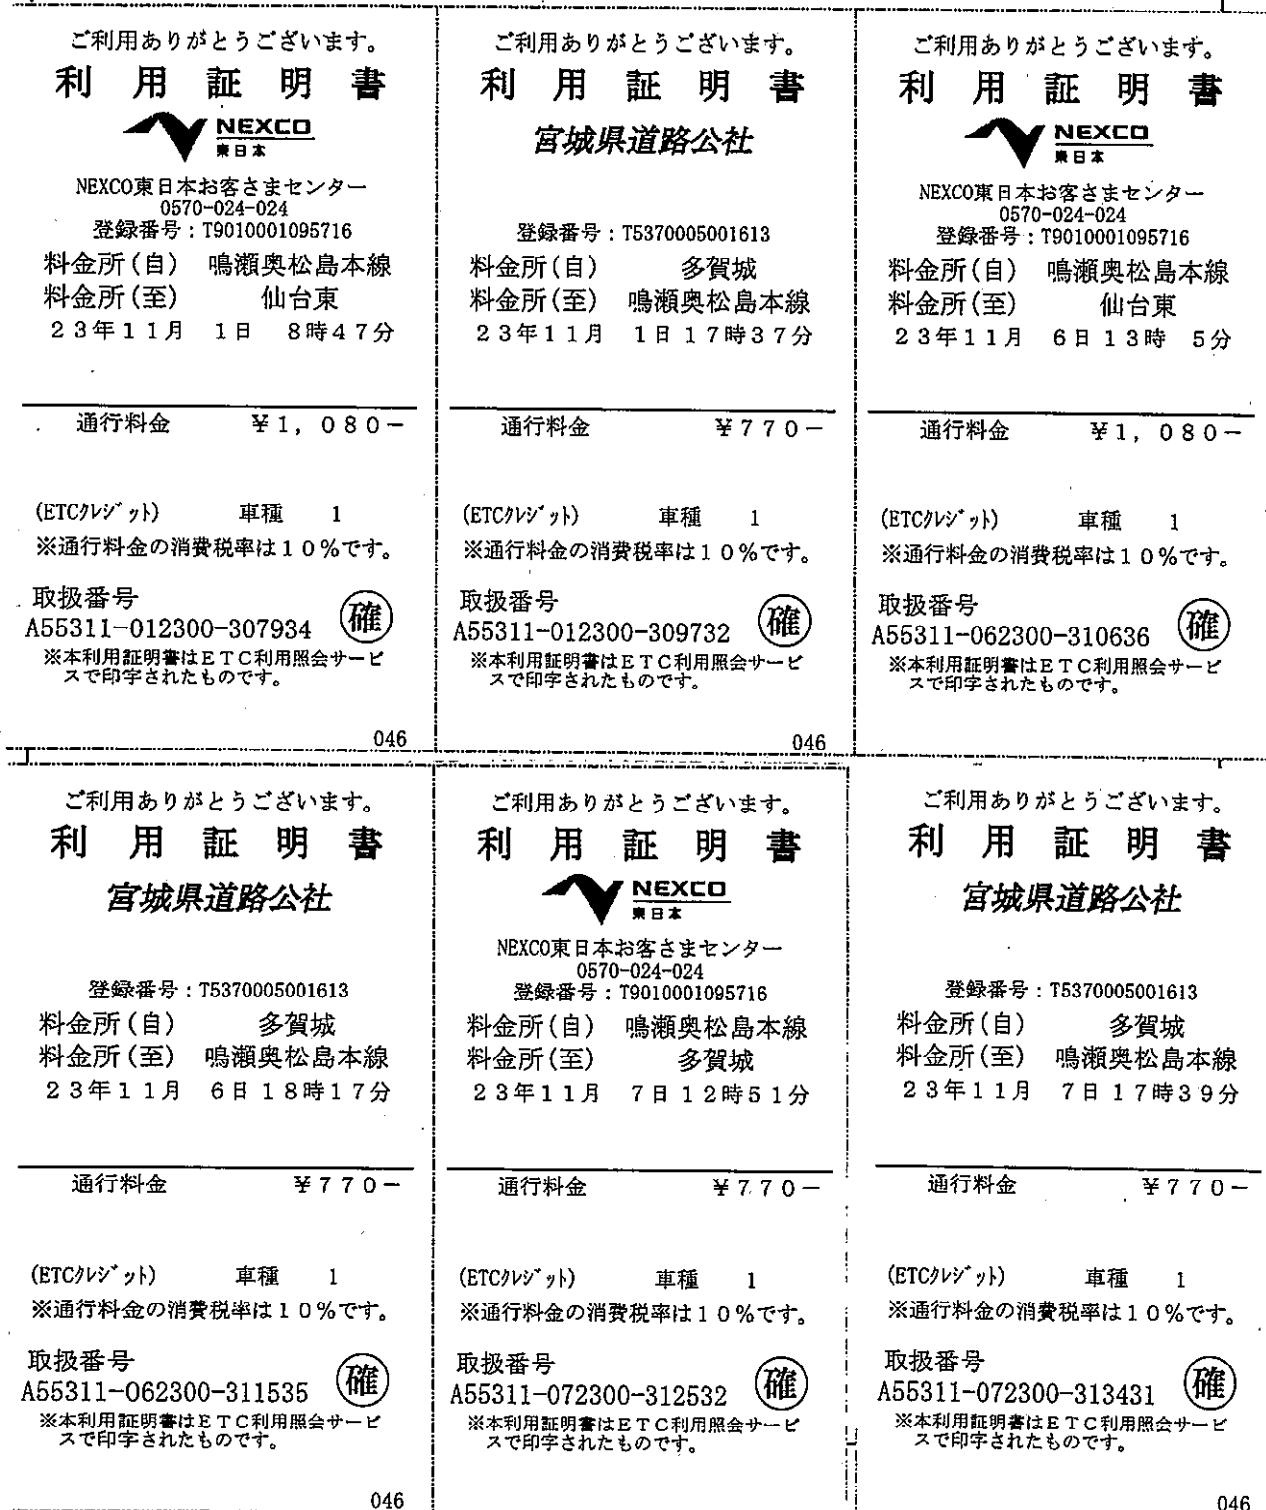 ご利用ありがとうございます。
利用証明書
NEXCO
東日本
NEXCO東日本お客さまセンター
0570-024-024
登録番号：T9010001095716
料金所(自) 鳴瀬奥松島本線
料金所(至) 仙台東
23年11月 1日 8時47分
通行料金 ¥1,080－
(ETCｸﾚｼﾞｯﾄ) 車種 1
※通行料金の消費税率は10%です。
取扱番号
A55311-012300-307934 確
※本利用証明書はＥＴＣ利用照会サービ
スで印字されたものです。
046
ご利用ありがとうございます。
利用証明書
宮城県道路公社
登録番号：T5370005001613
料金所(自) 多賀城
料金所(至) 鳴瀬奥松島本線
23年11月 1日17時37分
通行料金 ¥770－
(ETCｸﾚｼﾞｯﾄ) 車種 1
※通行料金の消費税率は10%です。
取扱番号
A55311-012300-309732 確
※本利用証明書はＥＴＣ利用照会サービ
スで印字されたものです。
046
ご利用ありがとうございます。
利用証明書
NEXCO
東日本
NEXCO東日本お客さまセンター
0570-024-024
登録番号：T9010001095716
料金所(自) 鳴瀬奥松島本線
料金所(至) 仙台東
23年11月 6日13時 5分
通行料金 ¥1,080－
(ETCｸﾚｼﾞｯﾄ) 車種 1
※通行料金の消費税率は10%です。
取扱番号
A55311-062300-310636 確
※本利用証明書はＥＴＣ利用照会サービ
スで印字されたものです。
ご利用ありがとうございます。
利用証明書
宮城県道路公社
登録番号：T5370005001613
料金所(自) 多賀城
料金所(至) 鳴瀬奥松島本線
23年11月 6日18時17分
通行料金 ¥770－
(ETCｸﾚｼﾞｯﾄ) 車種 1
※通行料金の消費税率は10%です。
取扱番号
A55311-062300-311535 確
※本利用証明書はＥＴＣ利用照会サービ
スで印字されたものです。
046
ご利用ありがとうございます。
利用証明書
NEXCO
東日本
NEXCO東日本お客さまセンター
0570-024-024
登録番号：T9010001095716
料金所(自) 鳴瀬奥松島本線
料金所(至) 多賀城
23年11月 7日12時51分
通行料金 ¥770－
(ETCｸﾚｼﾞｯﾄ) 車種 1
※通行料金の消費税率は10%です。
取扱番号
A55311-072300-312532 確
※本利用証明書はＥＴＣ利用照会サービ
スで印字されたものです。
ご利用ありがとうございます。
利用証明書
宮城県道路公社
登録番号：T5370005001613
料金所(自) 多賀城
料金所(至) 鳴瀬奥松島本線
23年11月 7日17時39分
通行料金 ¥770－
(ETCｸﾚｼﾞｯﾄ) 車種 1
※通行料金の消費税率は10%です。
取扱番号
A55311-072300-313431 確
※本利用証明書はＥＴＣ利用照会サービ
スで印字されたものです。
046